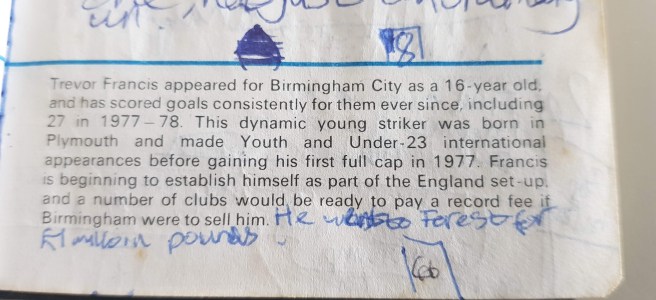 8
Trevor Francis appeared for Birmingham City as a 16-year old,
and has scored goals consistently for them ever since, including
27 in 1977–78. This dynamic young striker was born in
Plymouth and made Youth and Under-23 international
appearances before gaining his first full cap in 1977. Francis
is beginning to establish himself as part of the England set-up,
and a number of clubs would be ready to pay a record fee if
Birmingham were to sell him. He to Forest for
£1 pounds.